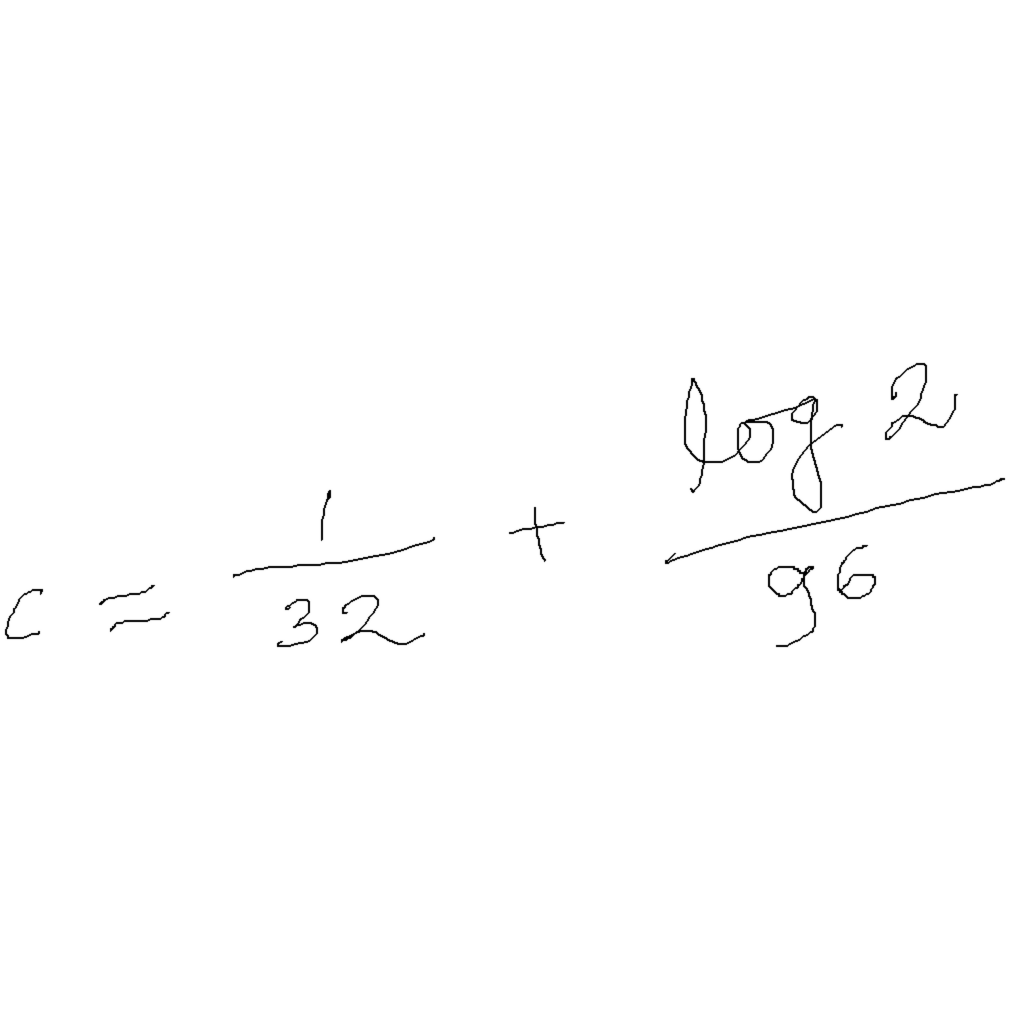 c = \frac{1}{32} + \frac{\log 2}{96}